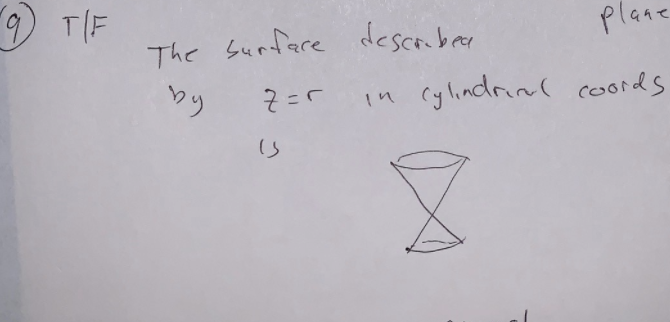 9 T/F
plane
The surface described
by z=r in cylindrical coords
is